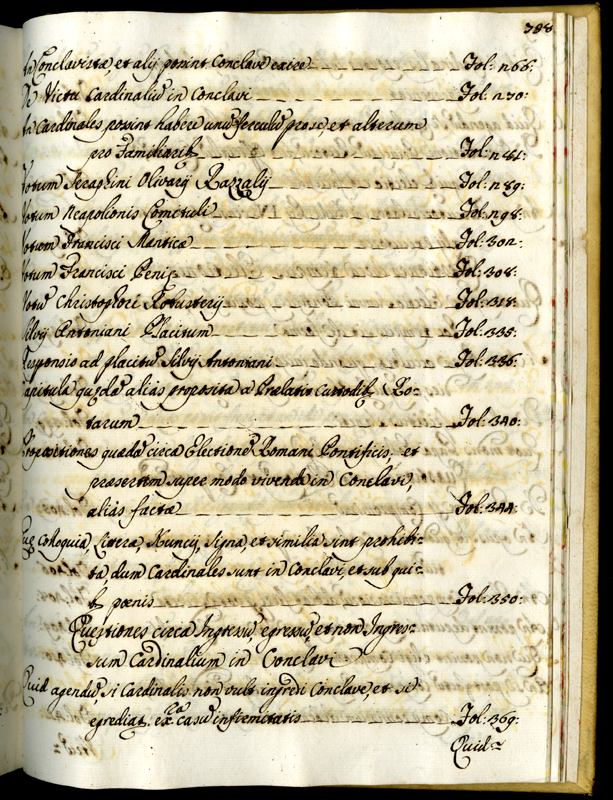 388
An Conclavistæ, et alij possint Conclave exire Fol: 266:
De Victu Cardinaliũ in Conclavi Fol: 270:
An Cardinales possint habere unũ ferculũ pro se, et alterum
pro Familiarib Fol: 281:
Votum Seraphini Olivarij Razzalij Fol: 289:
Votum Neapolionis Comituli Fol: 298:
Votum Francisci Mantica Fol: 302:
Votum Francisci Peniæ Fol: 308:
Votũ Christophori Robusterij Fol: 318:
Silvij Antoniani Placitum Fol: 335:
Responsio ad placitũ Silvij Antoniani Fol: 336:
Capitula quædã alias proposita a Prælatis custodib Ro-
tarum Fol: 340:
Propositiones quædã circa Electionẽ Romani Pontificis, et
præsertim super modo vivendi in Conclavi,
alias factæ Fol: 344:
Quæ Colloquia, Literæ, Nuncij, Signa, et similia sint prohibi-
ta, dum Cardinales sunt in Conclavi, et sub qui-
b pœnis Fol: 350:
Quæstiones circa Ingressũ egressũ, et non Ingres-
sum Cardinalium in Conclavi
Quid agendũ, si Cardinalis non vult ingredi Conclave, et si
egrediat. ex ca casu infirmitatis Fol: 369:
Quid